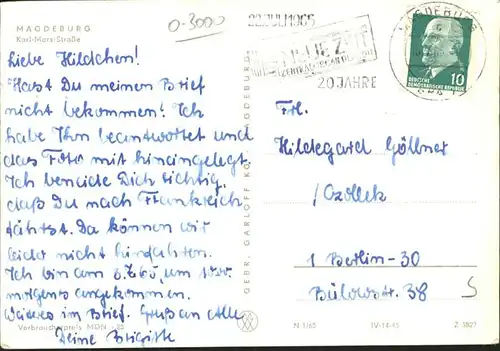 MAGDEBURG
Karl-Marx-Straße
0-3000
Liebe Hildchen!
Hast Du meinen Brief
nicht bekommen? Ich
habe Ihn beantwortet und
das Foto mit hineingelegt.
Ich beneide Dich richtig,
daß Du nach Frankreich
fährst. Da können wir
leider nicht hinfahren.
Ich bin am um
morgens angekommen.
Weiteres im Brief. Gruß an Alle
Deine Brigitte
Verbraucherpreis MDN
GEBR. GARLOFF KG
20 JAHRE
MAGDEBURG
DEUTSCHE
DEMOKRATISCHE REPUBLIK
10
Frl.
Hildegard Göllner
1 Berlin-30
Bülowstr. 38
N 1/65 IV-14-45 Z 3827